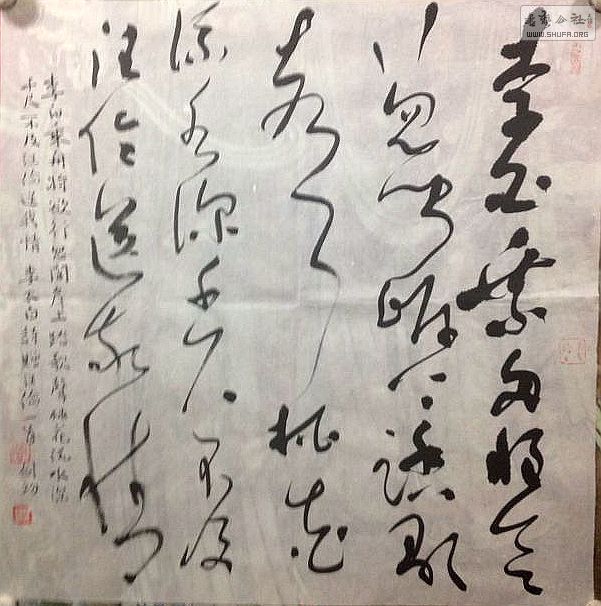 李白乘舟将欲
行忽闻岸上踏歌
声桃花
潭水深千尺不及
汪伦送我情
李白乘舟將欲行忽聞岸上踏歌聲桃花潭水深
千尺不及汪倫送我情 李太白詩贈汪倫一首
書藝公社
WWW.SHUFA.ORG